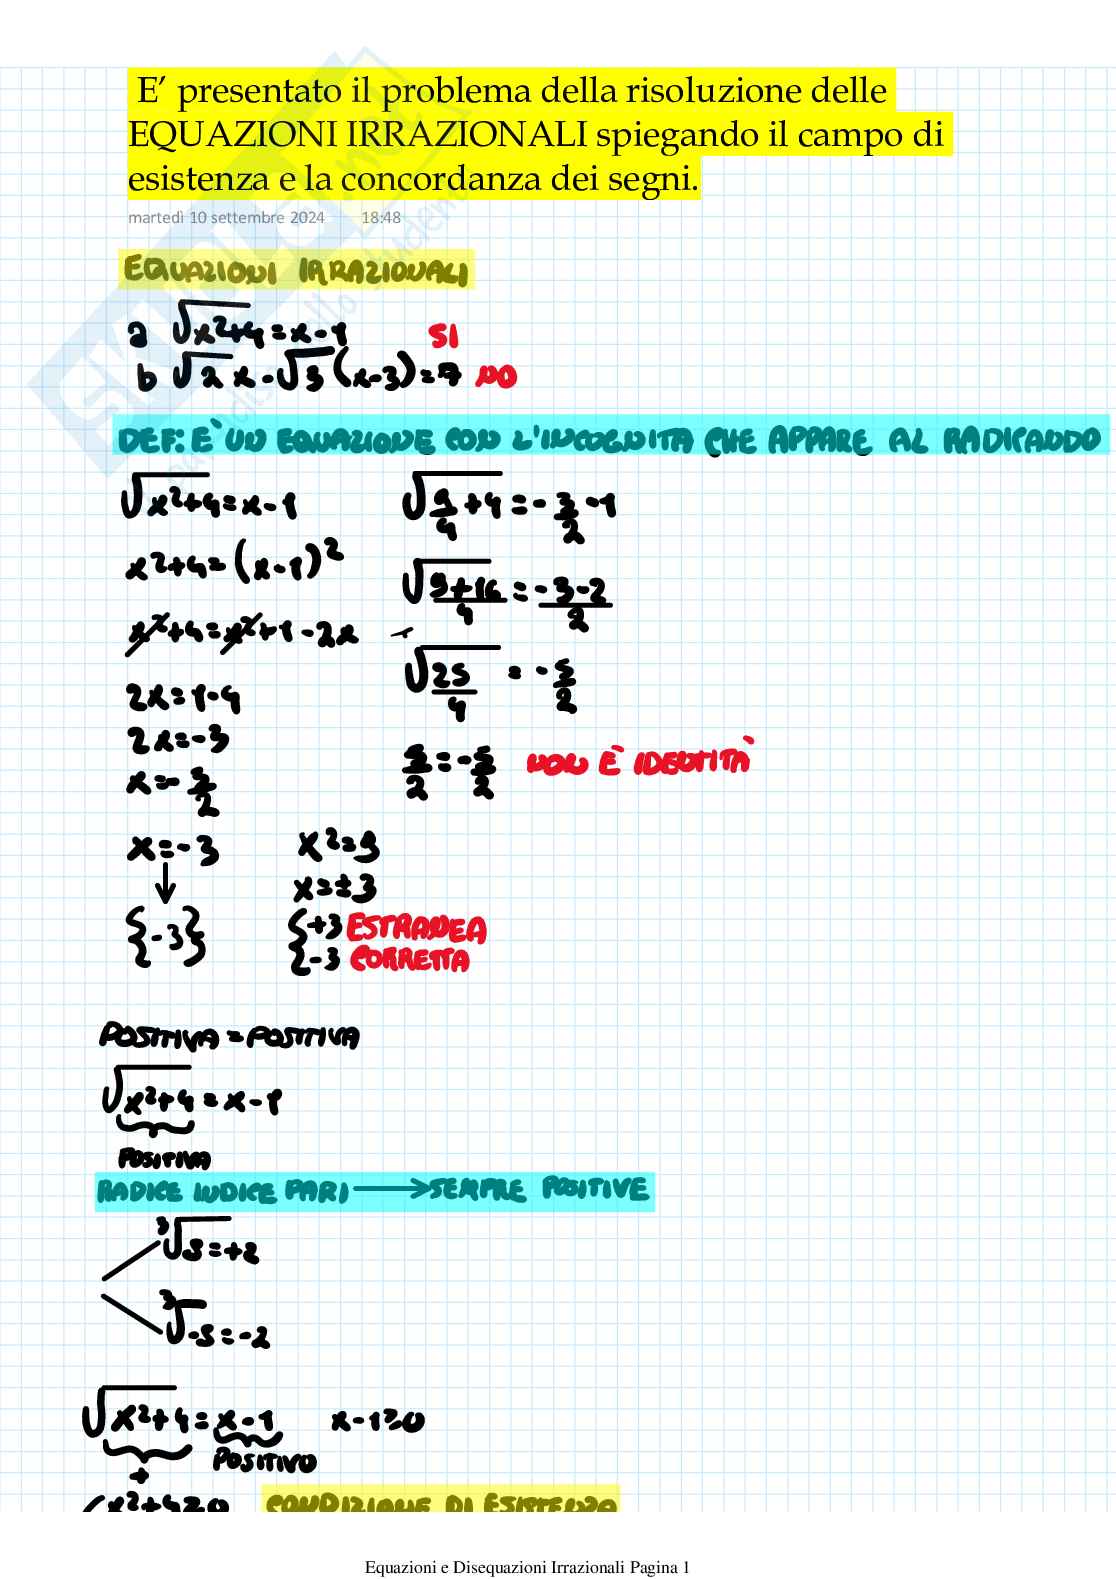 E' presentato il problema della risoluzione delle
EQUAZIONI IRRAZIONALI spiegando il campo di
esistenza e la concordanza dei segni.
martedì 10 settembre 2024 18:48
EQUAZIONI IRRAZIONALI
a √x²+4 = x-1 SI
b √2 x - √3 (x-3) = 7 NO
DEF: E' UN EQUAZIONE CON L'INCOGNITA CHE APPARE AL RADICANDO
√x²+4 = x-1
x²+4 = (x-1)²
x²+4 = x²+1-2x
2x = 1-4
2x = -3
x = -3/2
√9/4 + 4 = -3/2 - 1
√9+16/4 = -3-2/2
√25/4 = -5/2
5/2 = -5/2 NON È IDENTITÀ
x = -3 x² = 9
x = ±3
{-3} { +3 ESTRANEA
-3 CORRETTA
POSITIVA = POSITIVA
√x²+4 = x-1
POSITIVA
RADICE INDICE PARI → SEMPRE POSITIVE
³√8 = +2
³√-8 = -2
√x²+4 = x-1 x-1≥0
+ POSITIVO
x²+4≥0 CONDIZIONE DI ESISTENZA
Equazioni e Disequazioni Irrazionali Pagina 1